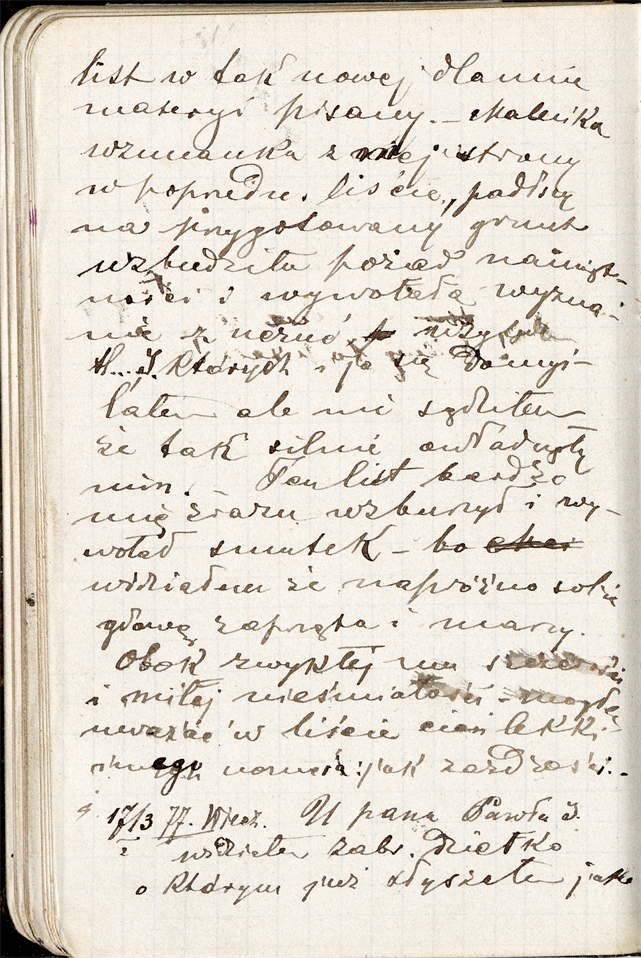 list w tak nowej dla mnie
materyi pisany. – Maleńka
wzmianka z mej strony
w poprzedn. liście, padłszy
na przygotowany grunt
wzbudziła pożąd namięt-
ności i wywołała wyzna-
nie z uczuć
których i ja się domyś-
lałem ale nie sądziłem
że tak silnie owładnęły
nim. Ten list bardzo
mię zrazu wzburzył i wy-
wołał smutek – bo
widziałem że napróżno sobie
głowę zaprząta i marzy.
Obok zwykłej mu
i miłej nieśmiałości – mogłem
uważać w liście cień lekki
innego jak zazdrości. –
17/3 77. Wiecz. U pana Pawła J.
widziałem zabr. dziełko
o którym już słyszałem jako